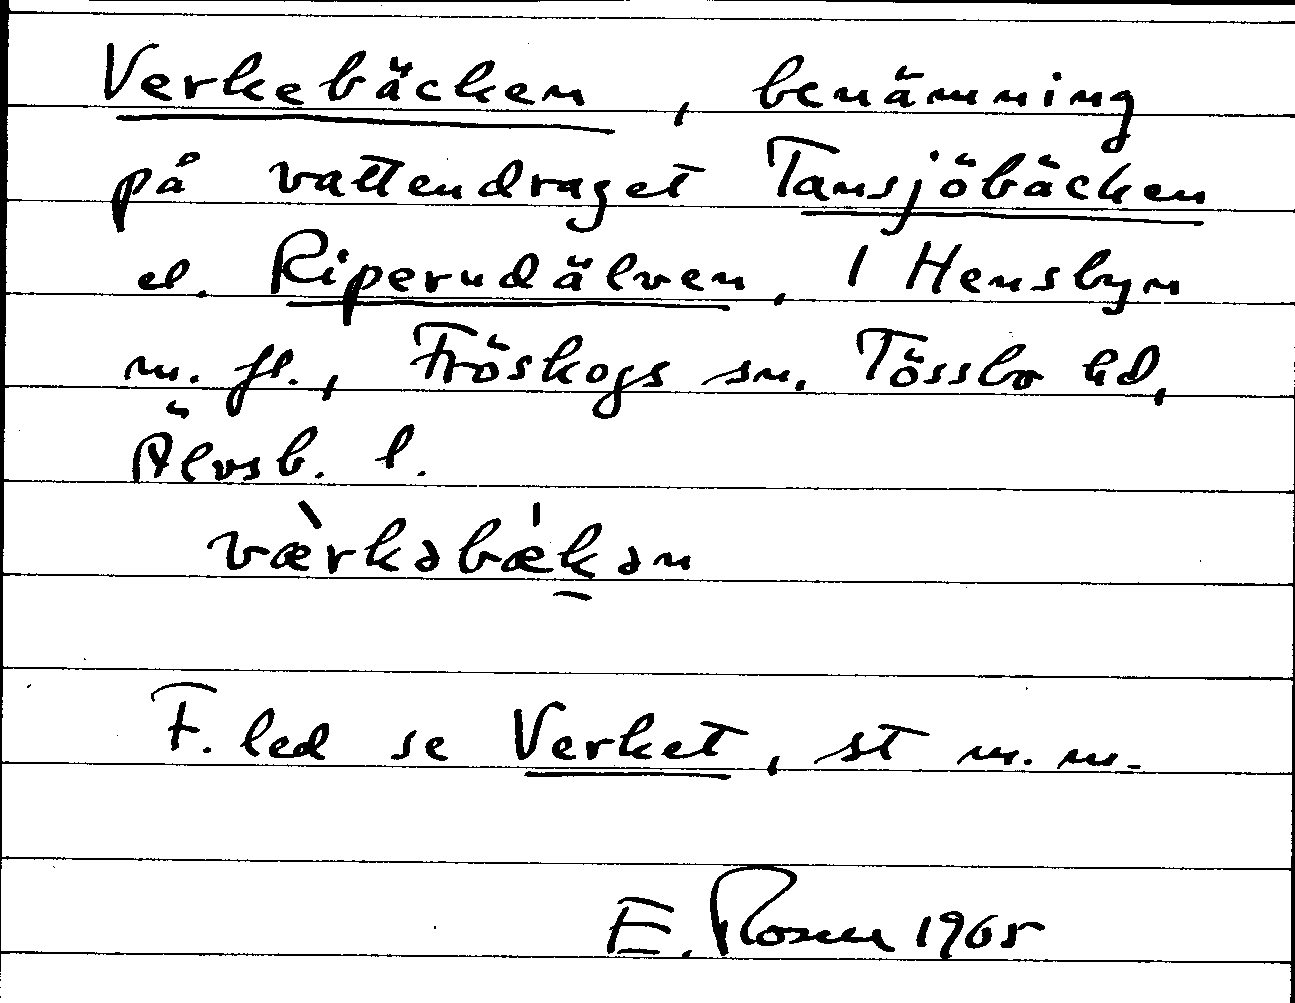 Verkebäcken, benämning
på vattendraget Tansjöbäcken
el. Riperudälven, 1 Hensbyn
m. fl., Fröskogs sn. Tössbo hd,
Älvsb. l.
væ̀rkəbæ̍k̠ən
F. led se Verket, st m. m.
E. Rosen 1965